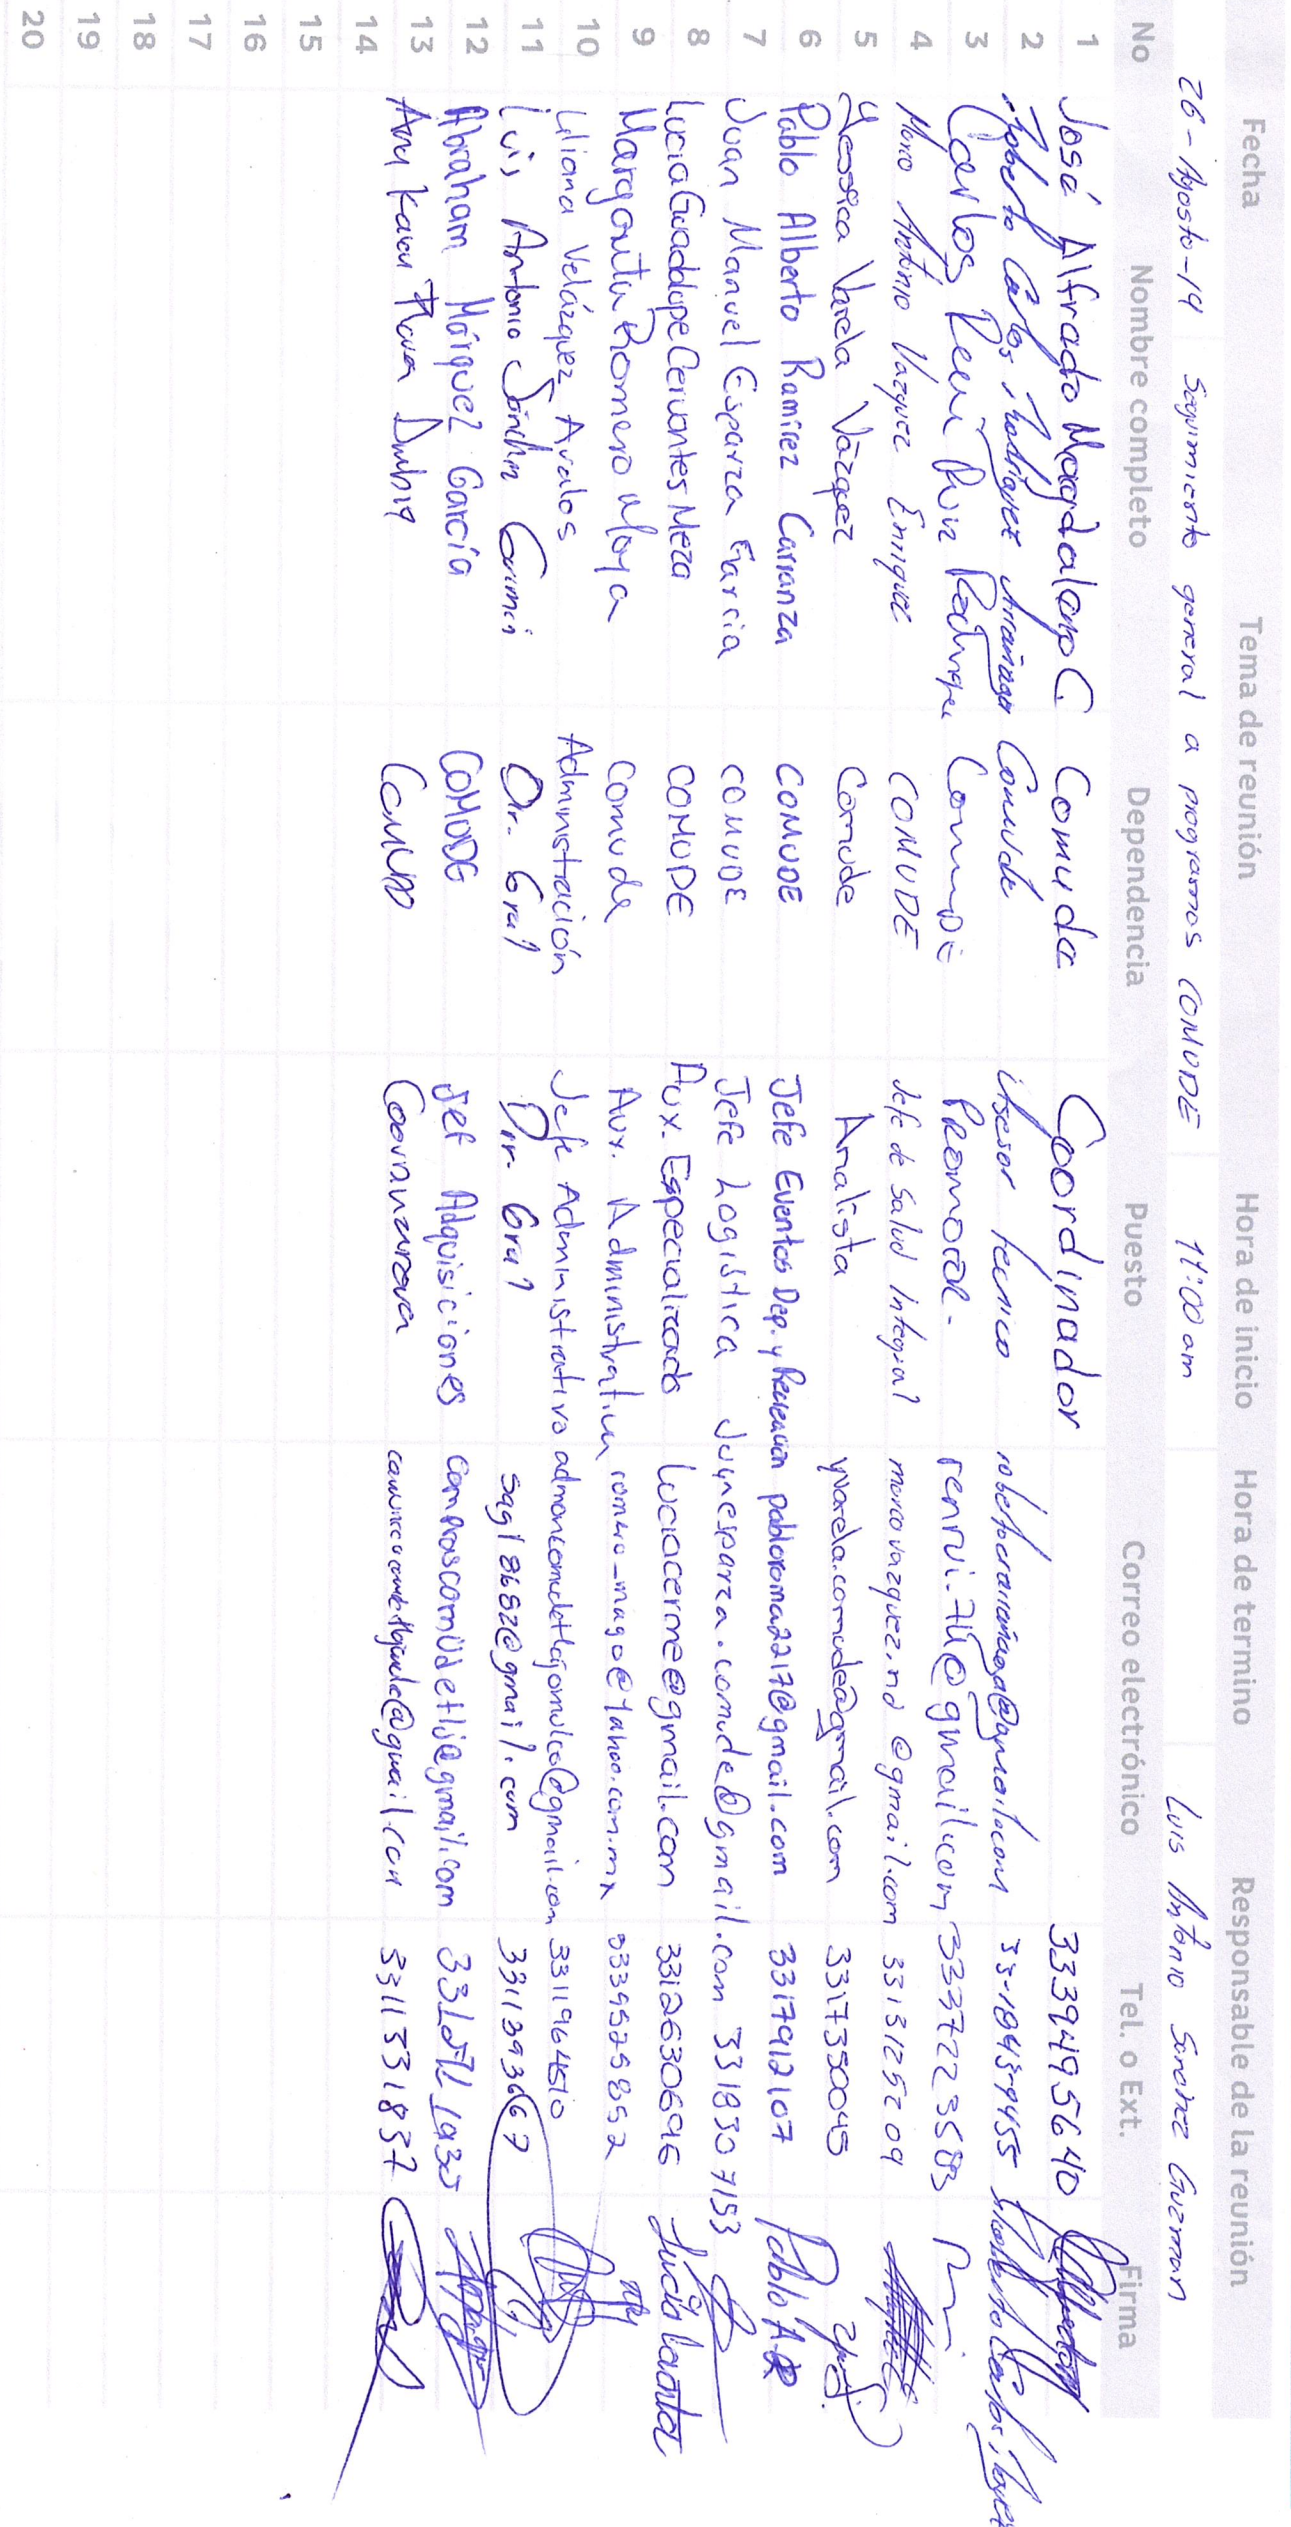 Fecha Tema de reunión Hora de inicio Hora de termino Responsable de la reunión
26-Agosto-19 Seguimiento general a programas COMUDE 11:00 am Luis Antonio Sanchez Guzman
No Nombre completo Dependencia Puesto Correo electrónico Tel. o Ext. Firma
1 José Alfredo Magdaleno C Comude Coordinador 3339495640
2 Roberto Carlos Rodriguez Arrañaga Comude Asesor tecnico 33-1843-9455
3 Carlos Comude Promotor.
4 Marco Antonio Vazquez Enriquez COMUDE Jefe de Salud Integral marcovazquez.nd@gmail.com 3313125209
5 Yessica Varela Vázquez Comude Analista yvarela.comude@gmail.com 3317350045
6 Pablo Alberto Ramirez Carranza COMUDE Jefe Eventos Dep. y Recreación pabloroma2217@gmail.com 3317912107 Pablo A R
7 Juan Manuel Esparza Garcia COMUDE Jefe Logistica juanesparza.comude@gmail.com 3318307153
8 Lucia Guadalupe Cervantes Meza COMUDE Aux. Especializado luciacerme@gmail.com 3312630696
9 Margarita Romero Moya Comude Aux. Administrativo 3339525852
10 Liliana Velázquez Avalos Administración Jefe Administrativo admoncomudetlajomulco@gmail.com 3311964510
11 Luis Antonio Sánchez Dir. Gral Dir. Gral sagl8682@gmail.com 3311393667
12 Abraham Márquez García COMUDE Jef Adquisiciones comprascomudetlj@gmail.com
13 Ana Karen COMUDE @gmail.com 3311331837
14
15
16
17
18
19
20